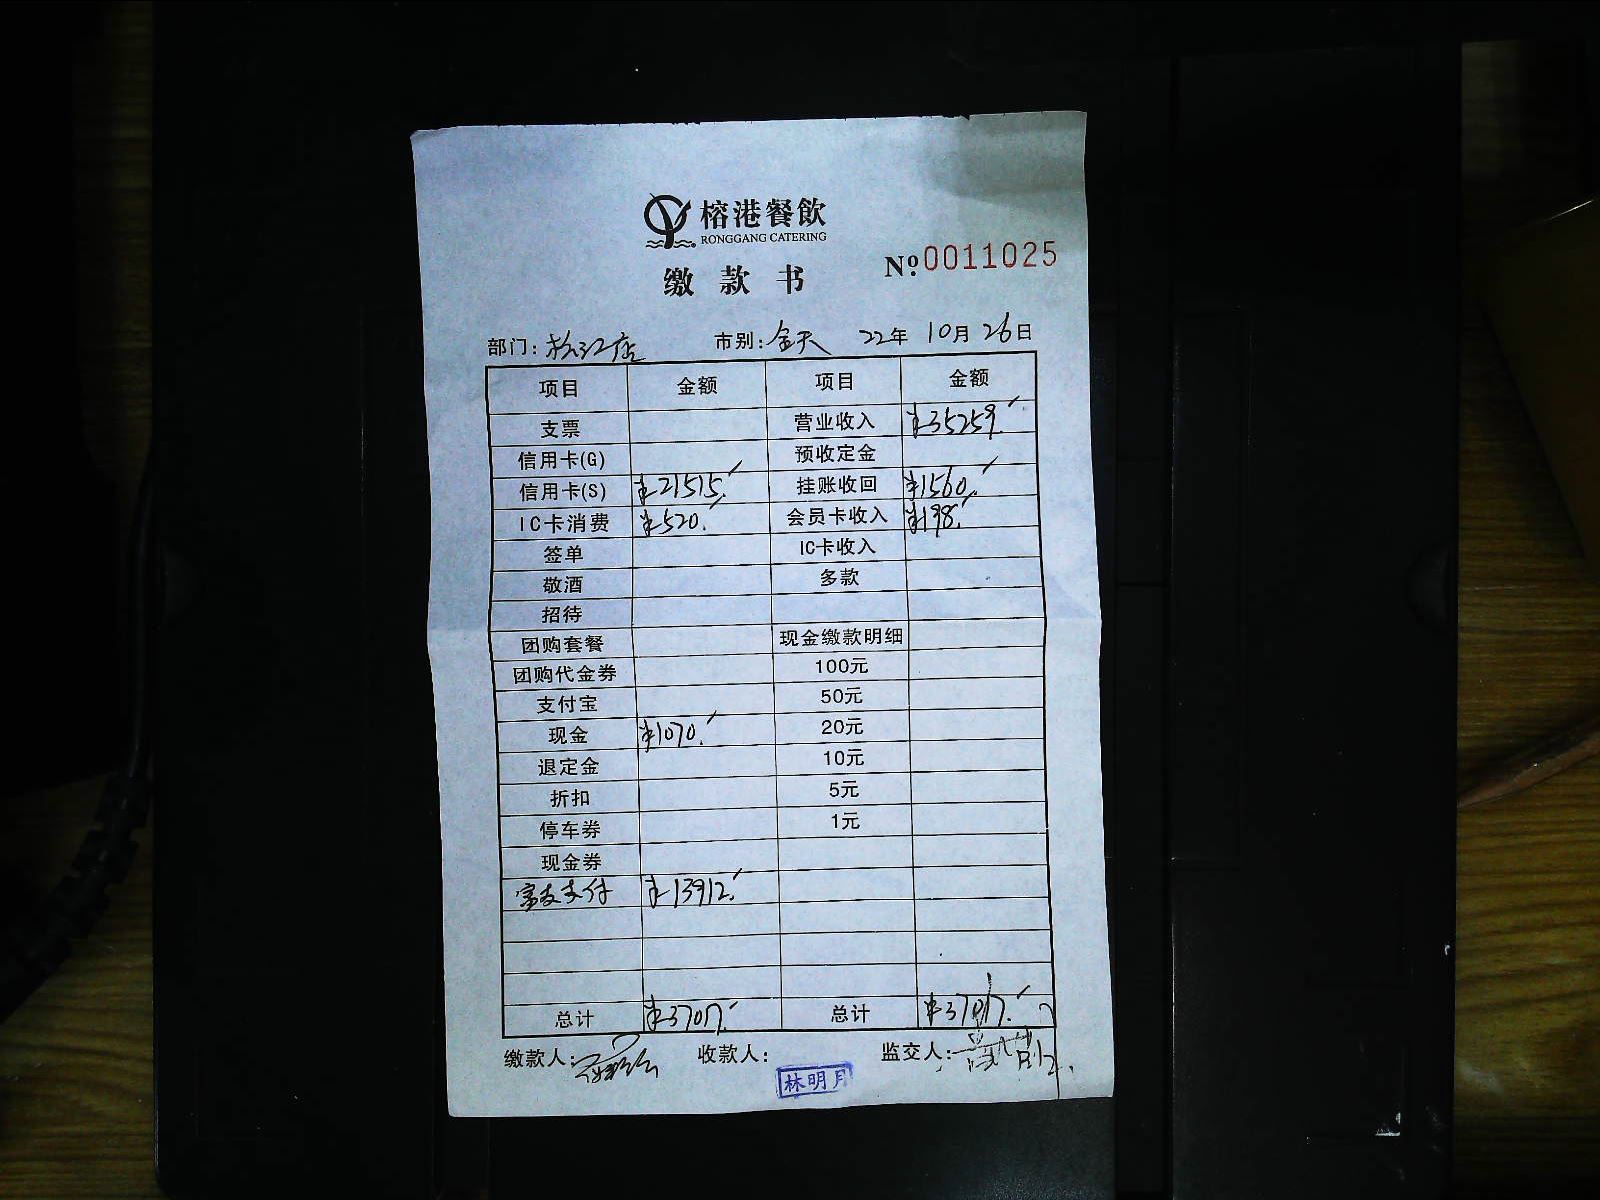 榕港餐飲
RONGGANG CATERING
缴款书 №0011025
部门: 松江店 市别: 全天 22年 10月 26日
项目 金额 项目 金额
支票 营业收入 ¥35259.
信用卡(G) 预收定金
信用卡(S) ¥21515. 挂账收回 ¥1560.
IC卡消费 ¥520. 会员卡收入 ¥198.
签单 IC卡收入
敬酒 多款
招待
团购套餐 现金缴款明细
团购代金券 100元
支付宝 50元
现金 ¥1070. 20元
退定金 10元
折扣 5元
停车券 1元
现金券
支付 ¥13912.
总计 ¥37017. 总计 ¥37017.
缴款人: 收款人: 林明月 监交人: